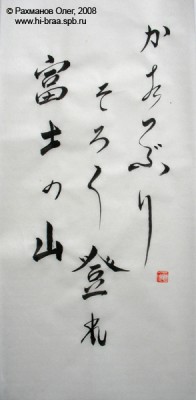 © Рахманов Олег, 2008
www.hi-braa.spb.ru
かたつぶり
そろ〳〵登れ
富士の山